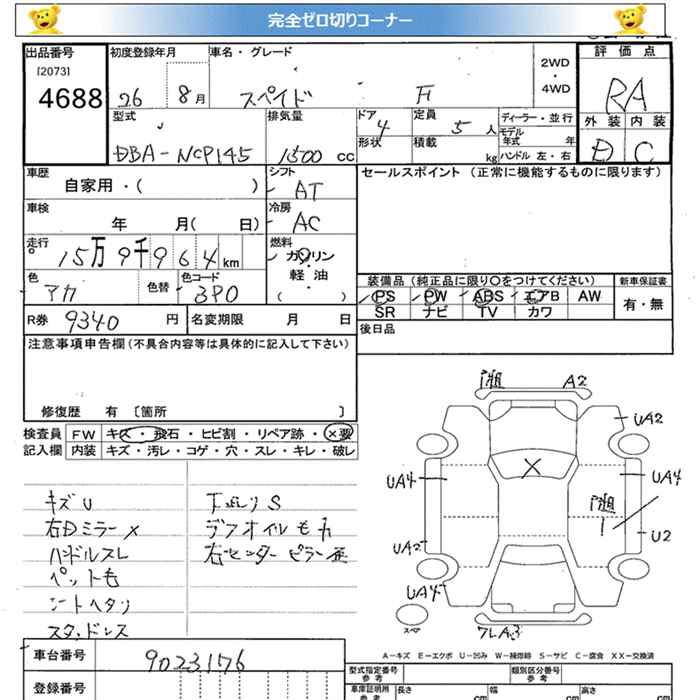 完全ゼロ切りコーナー
出品番号
[2073]
4688
初度登録年月
26 8 月
車名・グレード
スペイド F
2WD
・
4WD
評価点
RA
外装 内装
D C
型式
DBA-NCP145
排気量
1500 cc
ドア
4
形状
定員
5 人
積載
kg
ディーラー・並行
モデル
年式 年
ハンドル 左・右
車歴
自家用・( )
シフト
AT
セールスポイント (正常に機能するものに限ります)
車検
年 月( 日)
冷房
AC
走行
15万9千964 km
燃料
ガソリン
・
軽油
( )
色
アカ
色替
色コード
3P0
装備品 (純正品に限り○をつけてください)
PS PW ABS エアB AW
SR ナビ TV カワ
新車保証書
有・無
R券 9340 円
名変期限 月 日
後日品
注意事項申告欄(不具合内容等は具体的に記入して下さい)
修復歴 有 [箇所 ]
検査員
記入欄
FW キズ・飛石・ヒビ割・リペア跡・×要
内装 キズ・汚レ・コゲ・穴・スレ・キレ・破レ
キズU
右Dミラー×
ハンドルスレ
ペット毛
シートヘタリ
スタッドレス
下廻りS
デフオイルモレ
右センターピラー
A2
UA2
UA4
UA4
X
1
UA2
U2
UA4
スペア
A-キズ E-エクボ U-凹み W-補修跡 S-サビ C-腐食 XX-交換済
車台番号
9023176
登録番号
型式指定番号
参考
類別区分番号
参考
車庫証明用
参考
長さ cm
幅 cm
高さ cm